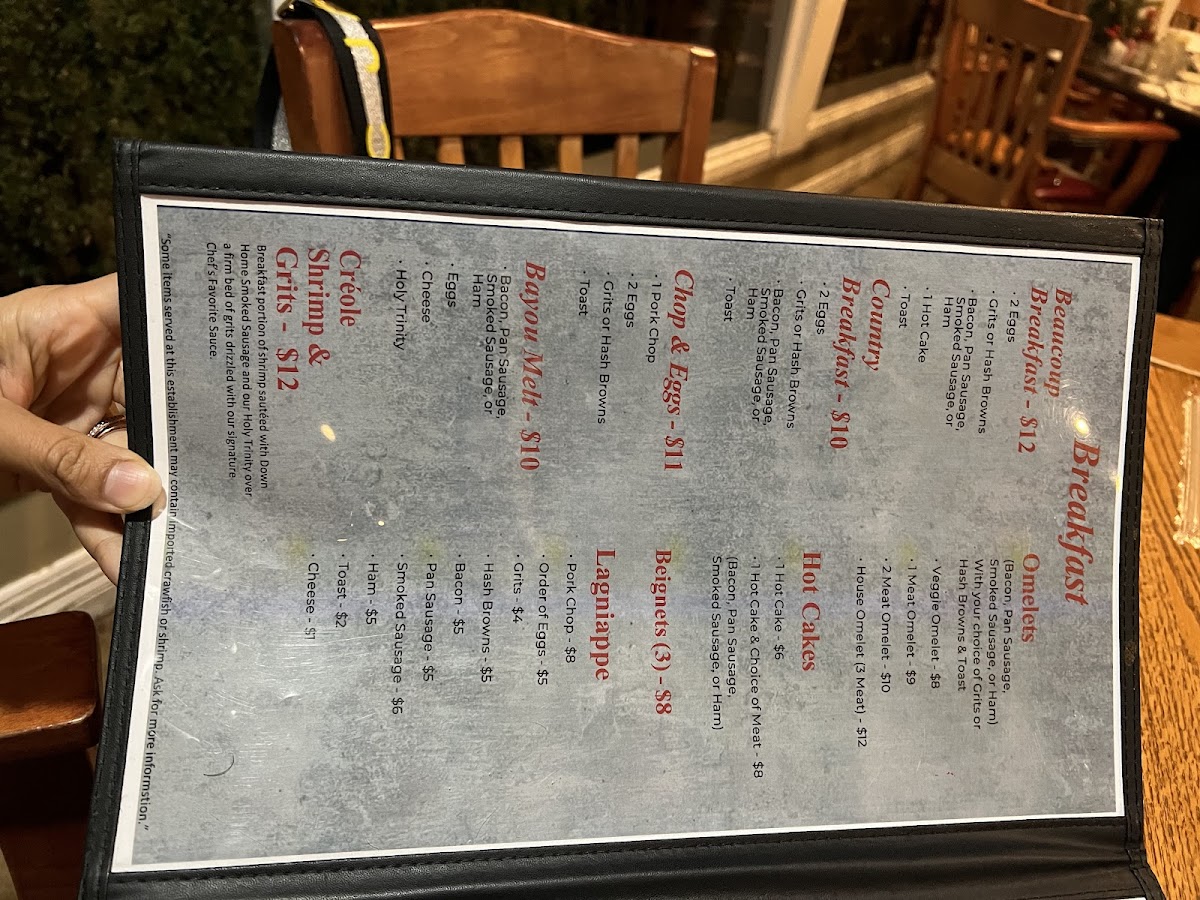 Breakfast
Beaucoup
Breakfast - $12
· 2 Eggs
· Grits or Hash Browns
· Bacon, Pan Sausage,
Smoked Sausage, or
Ham
· 1 Hot Cake
· Toast
Country
Breakfast - $10
· 2 Eggs
· Grits or Hash Browns
· Bacon, Pan Sausage,
Smoked Sausage, or
Ham
· Toast
Chop & Eggs - $11
· 1 Pork Chop
· 2 Eggs
· Grits or Hash Browns
· Toast
Bayou Melt - $10
· Bacon, Pan Sausage,
Smoked Sausage, or
Ham
· Eggs
· Cheese
· Holy Trinity
Créole
Shrimp &
Grits - $12
Breakfast portion of shrimp sautéed with Down
Home Smoked Sausage and our Holy Trinity over
a firm bed of grits drizzled with our signature
Chef's Favorite Sauce.
Omelets
(Bacon, Pan Sausage,
Smoked Sausage, or Ham)
With your choice of Grits or
Hash Browns & Toast
· Veggie Omelet - $8
· 1 Meat Omelet - $9
· 2 Meat Omelet - $10
· House Omelet (3 Meat) - $12
Hot Cakes
· 1 Hot Cake - $6
· 1 Hot Cake & Choice of Meat - $8
(Bacon, Pan Sausage,
Smoked Sausage, or Ham)
Beignets (3) - $8
Lagniappe
· Pork Chop - $8
· Order of Eggs - $5
· Grits - $4
· Hash Browns - $5
· Bacon - $5
· Pan Sausage - $5
· Smoked Sausage - $6
· Ham - $5
· Toast - $2
· Cheese - $1
"Some items served at this establishment may contain imported crawfish or shrimp. Ask for more informstion."